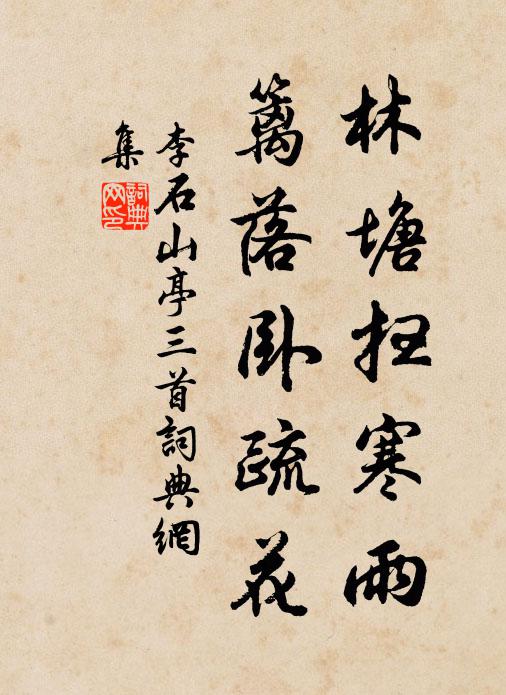 林塘抂寒雨
籬落卧疏花
李石山亭三首詞典網
集
詞典網印